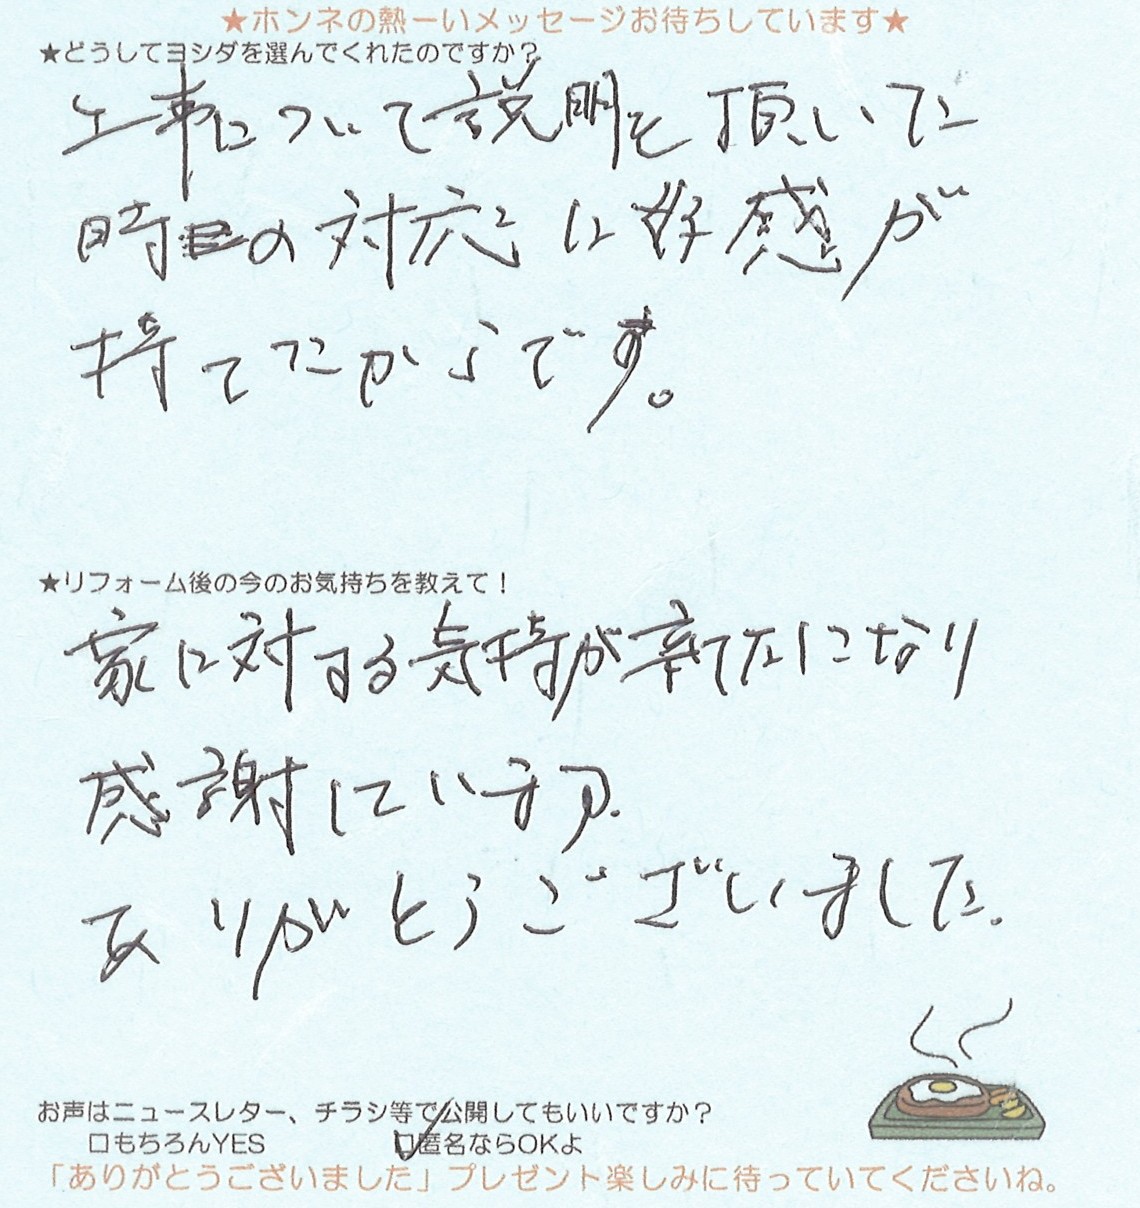 ★ホンネの熱ーいメッセージお待ちしています★
★どうしてヨシダを選んでくれたのですか？
工事について説明を頂いた
時の対応に好感が
持てたからです。
★リフォーム後の今のお気持ちを教えて！
家に対する気持が新たになり
感謝しています.
ありがとうございました.
お声はニュースレター、チラシ等で公開してもいいですか？
□もちろんYES　□匿名ならOKよ
「ありがとうございました」プレゼント楽しみに待っていてくださいね。